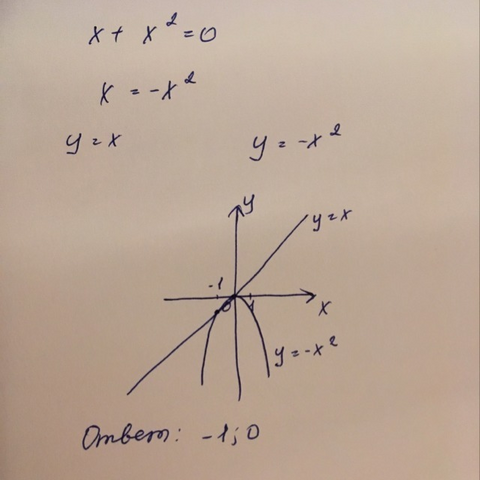 x + x² = 0
x = -x²
y = x
y = -x²
y
y = x
-1
0
1
x
y = -x²
Ответ: -1; 0